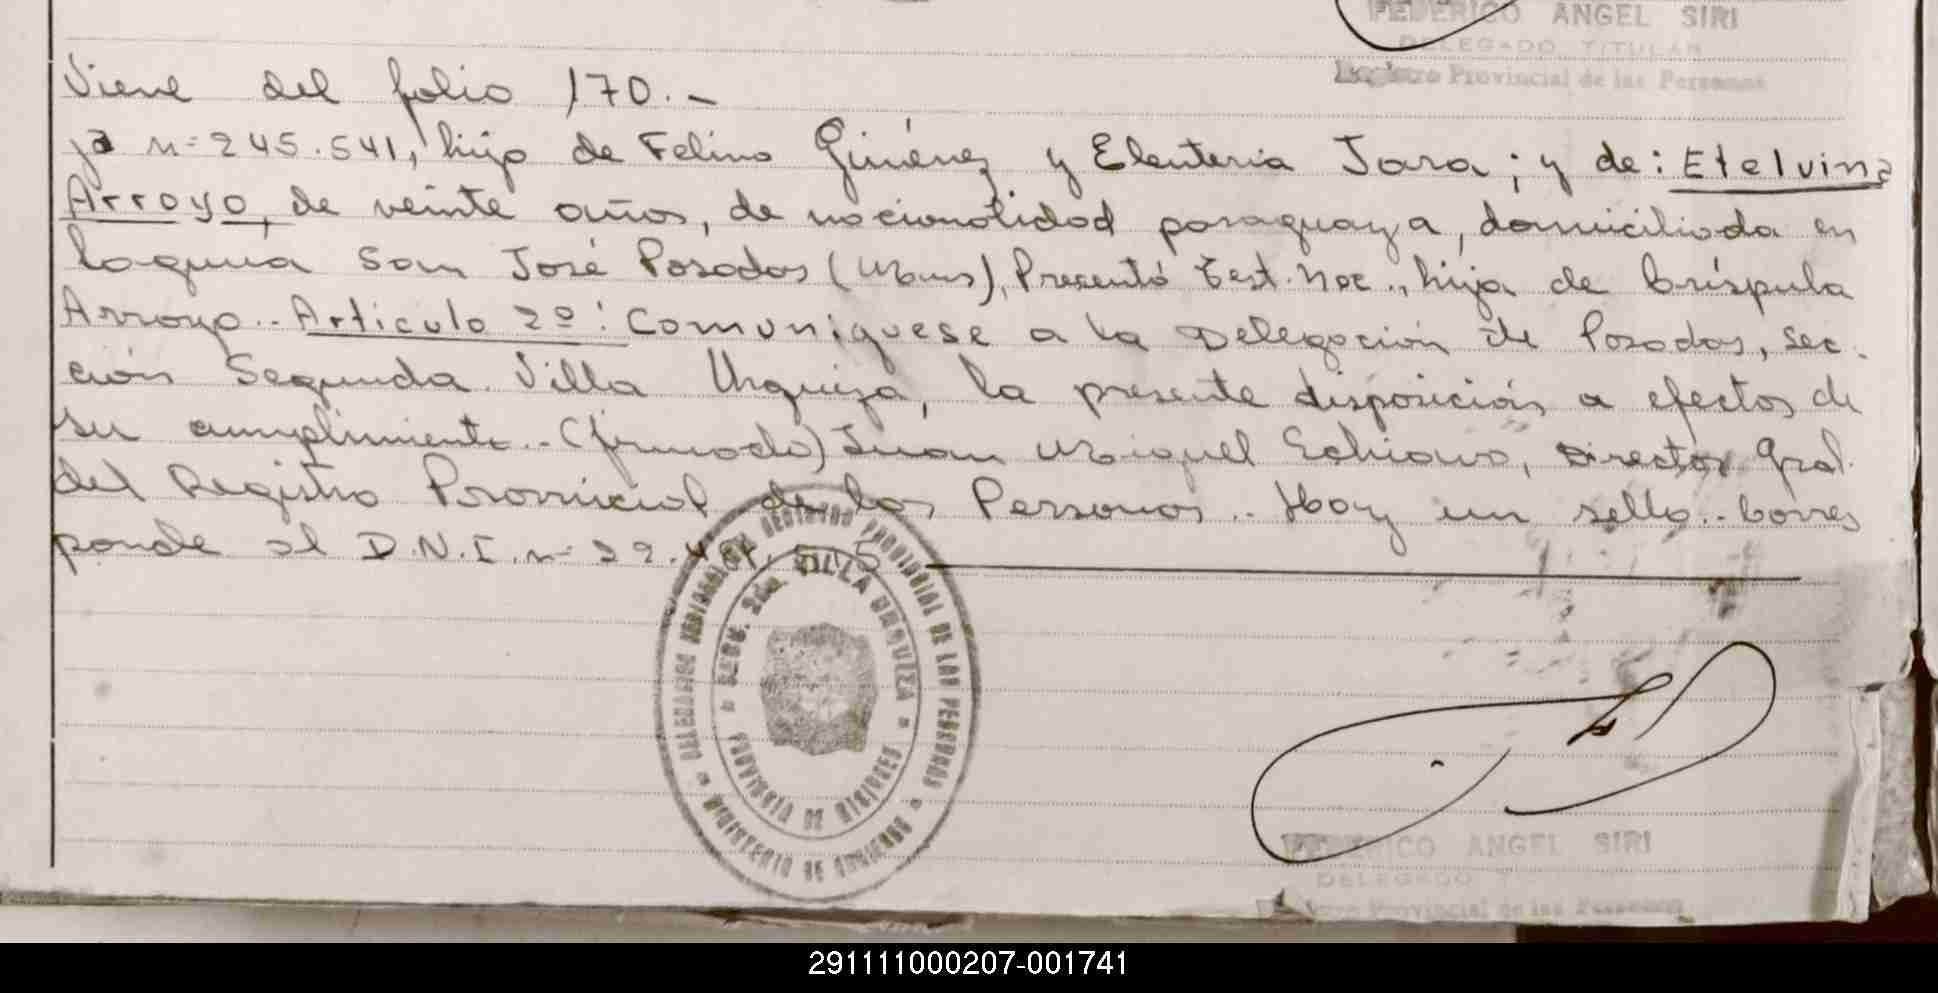 FEDERICO ANGEL SIRI
DELEGADO TITULAR
Registro Provincial de las Personas
Viene del folio 170.-
ja n=245.541, hijo de Felino Giménez y Eleuteria Jara; y de: Etelvina
Arroyo, de veinte años, de nacionalidad paraguaya, domiciliada en
Laguna San José Posadas (Mnes), Presentó Test. Nac., hija de Críspula
Arroyo.- Articulo 2º: Comuniquese a la Delegación de Posadas, Sec.
ción Segunda Villa Urquiza, la presente disposición a efectos de
su cumplimiento.- (firmado) Juan Miguel Director Gral.
del Registro Provincial de las Personas.- Hay un sello.- Corres
ponde al D.N.I. n=
DELEGACION REGISTRO PROVINCIAL DE LAS PERSONAS
MINISTERIO DE GOBIERNO
SECC. 2da. VILLA URQUIZA
PROVINCIA DE MISIONES
FEDERICO ANGEL SIRI
DELEGADO
Registro Provincial de las Personas
291111000207-001741